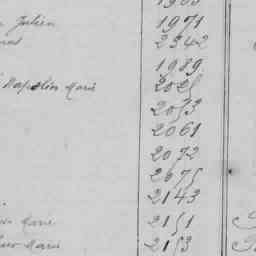 Julien 1971
2342
1989
Napoléon Marie 2025
2053
2061
2072
2075
2143
Marie 2151
Marie 2153